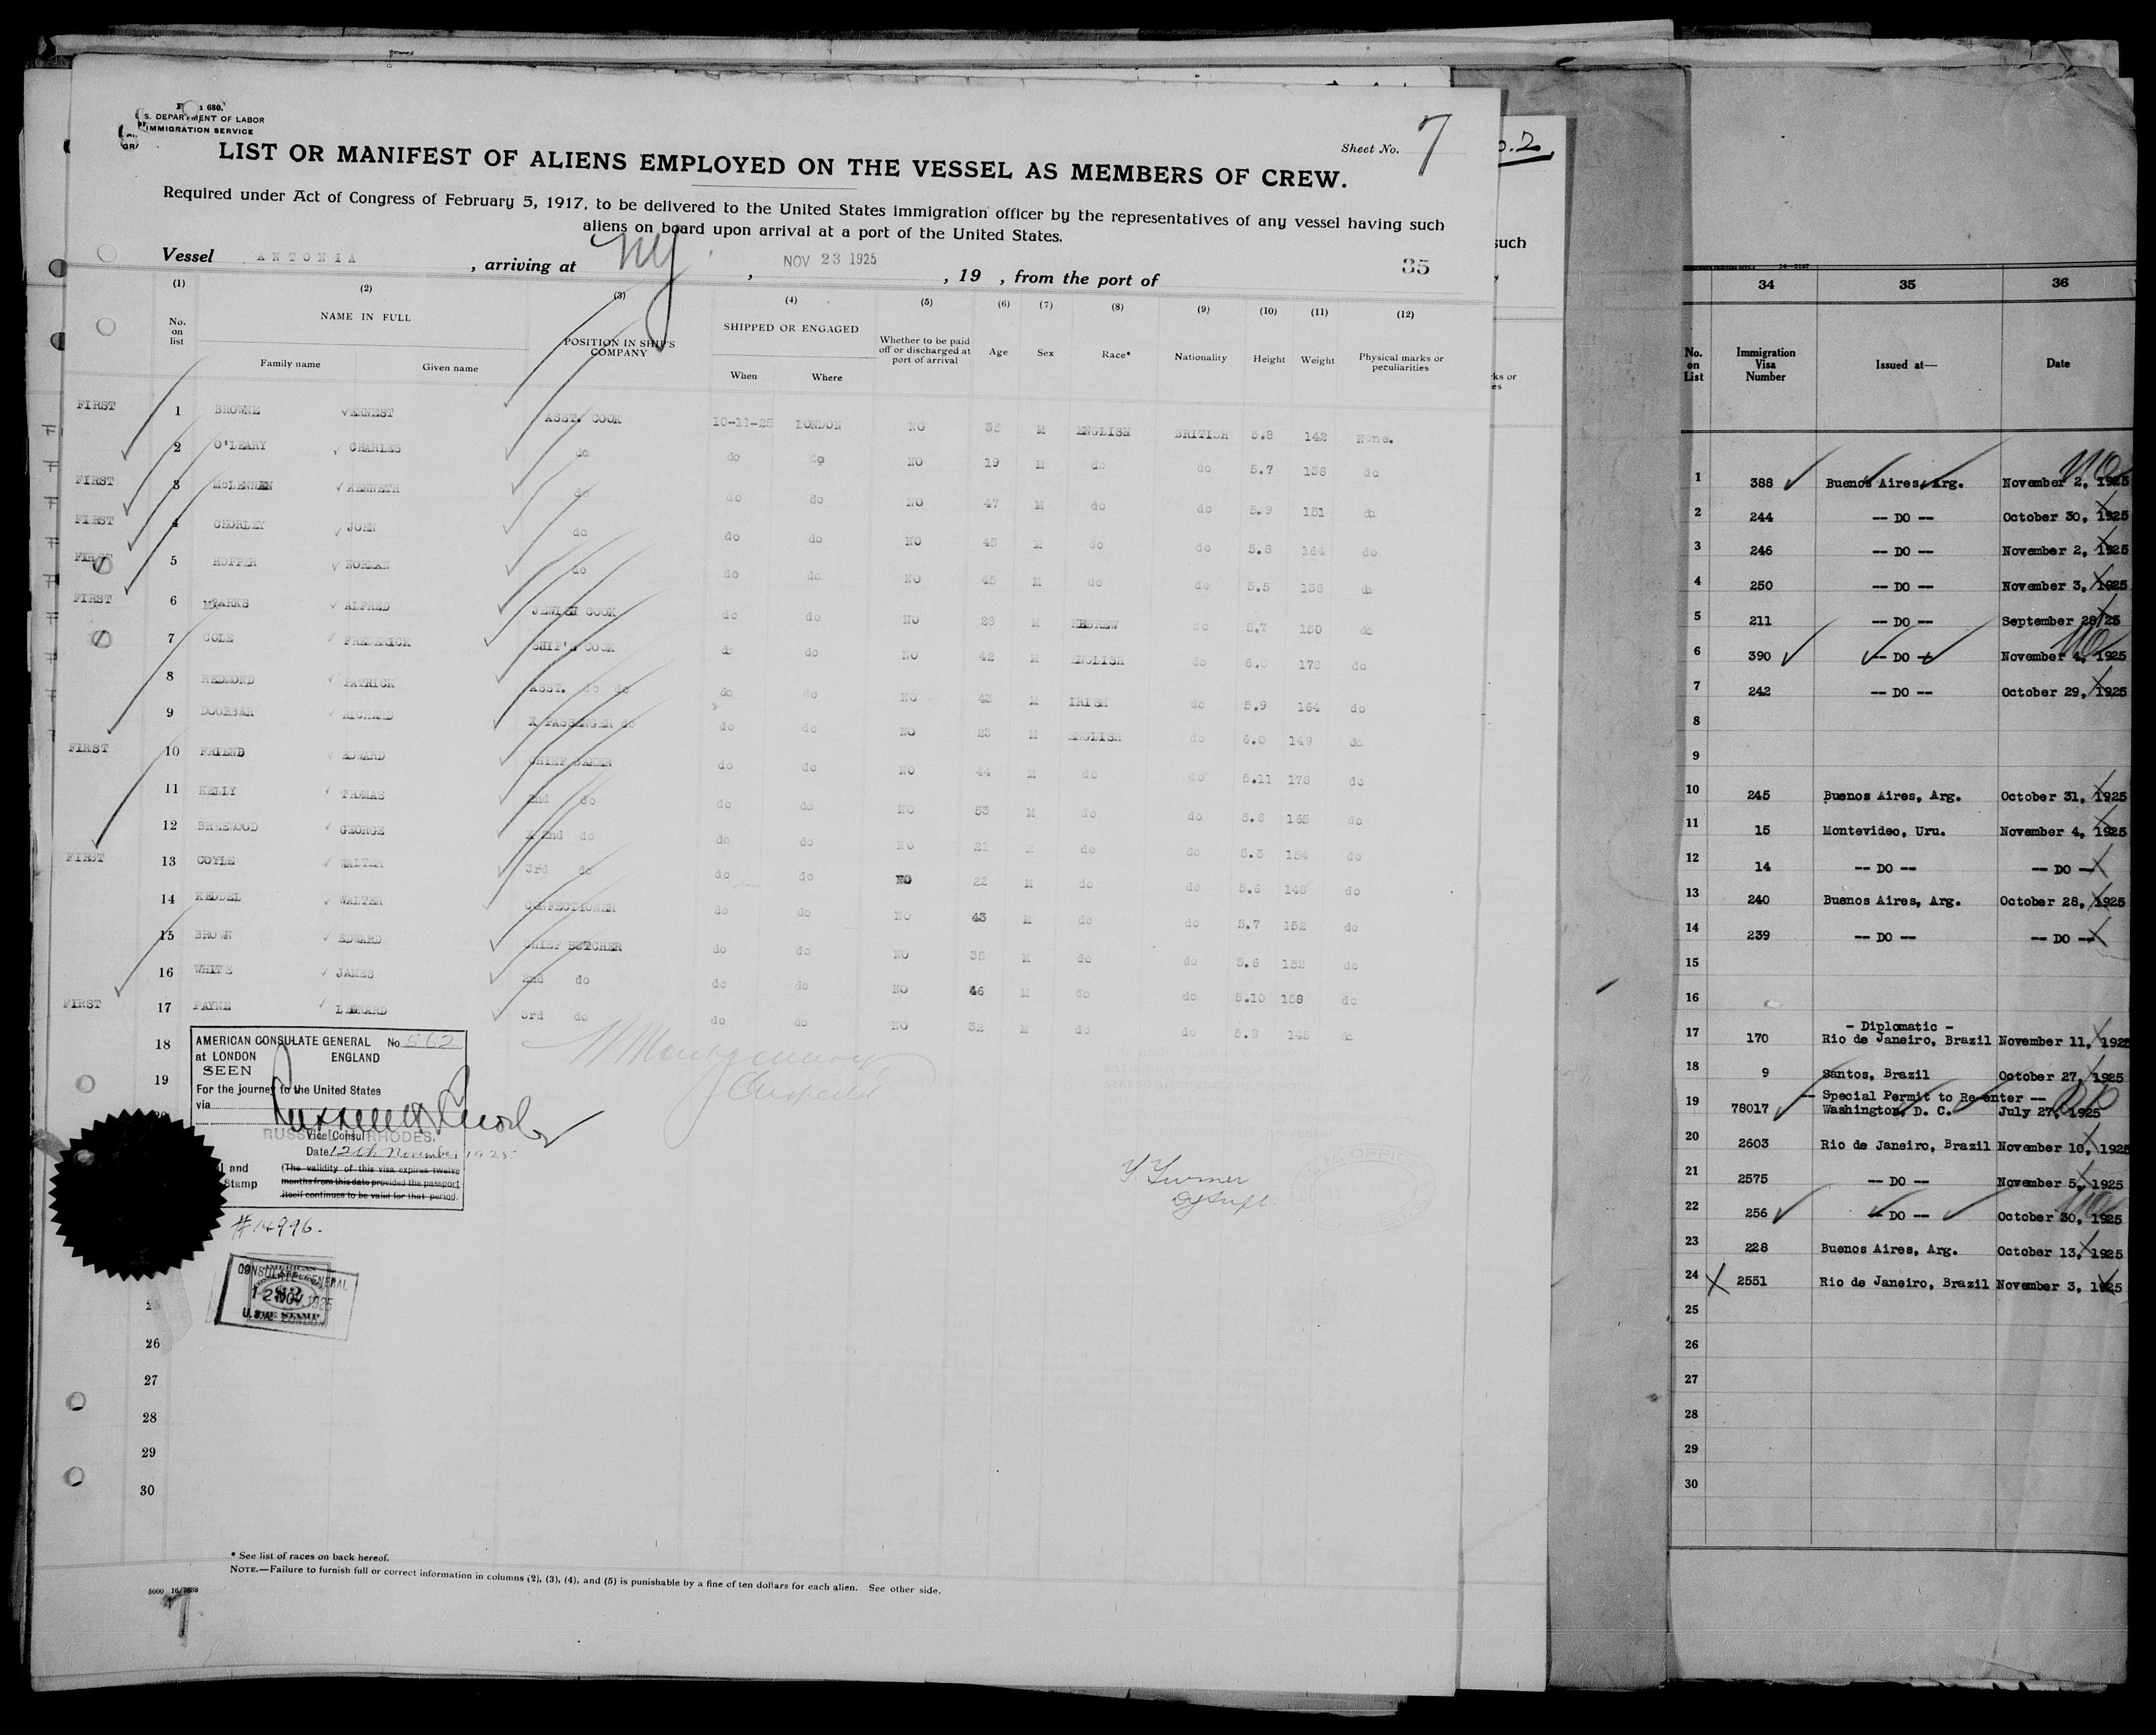 S. DEPARTMENT OF LABOR
IMMIGRATION SERVICE
Sheet No. 7
LIST OR MANIFEST OF ALIENS EMPLOYED ON THE VESSEL AS MEMBERS OF CREW.
Required under Act of Congress of February 5, 1917, to be delivered to the United States immigration officer by the representatives of any vessel having such
aliens on board upon arrival at a port of the United States.
Vessel ANTONIA , arriving at NY , NOV 23 1925 , 19 , from the port of
35
(1) (2) (3) (4) (5) (6) (7) (8) (9) (10) (11) (12)
No. on list NAME IN FULL Family name Given name POSITION IN SHIP'S COMPANY SHIPPED OR ENGAGED When Where Whether to be paid off or discharged at port of arrival Age Sex Race* Nationality Height Weight Physical marks or peculiarities
FIRST 1 BROWNE ERNEST ASST. COOK 10-11-25 LONDON NO M ENGLISH BRITISH 5.8 142 None.
2 O'LEARY CHARLES do do do NO 19 M do do 5.7 138 do
FIRST 3 KENNETH do do do NO 47 M do do 5.9 151 do
FIRST 4 CHORLEY JOHN do do do NO 45 M do do 5.8 164 do
FIRST 5 HOPPER NORMAN do do do NO 45 M do do 5.5 138 do
FIRST 6 MARKS ALFRED JEWISH COOK do do NO M HEBREW do 5.7 150 do
7 COLE FREDERICK SHIP'S COOK do do NO 42 M ENGLISH do 6.0 178 do
8 REDMOND PATRICK ASST. do do do do NO 43 M IRISH do 5.9 164 do
9 DOORBAR RICHARD X PASSENGER do do do NO 23 M ENGLISH do 6.0 149 do
FIRST 10 FRIEND EDWARD CHIEF BAKER do do NO 44 M do do 5.11 178 do
11 KELLY THOMAS 2nd do do do NO 53 M do do 5.8 165 do
12 GEORGE X 2nd do do do NO 21 M do do 5.5 154 do
FIRST 13 COYLE WALTER 3rd do do do NO 22 M do do 5.6 148 do
14 KEDDEL WALTER CONFECTIONER do do NO 43 M do do 5.7 152 do
15 BROWN EDWARD CHIEF BUTCHER do do NO 35 M do do 5.6 152 do
16 WHITE JAMES 2nd do do do NO 46 M do do 5.10 158 do
FIRST 17 PAYNE LEONARD 3rd do do do NO 32 M do do 5.8 148 do
18
19
20
25
26
27
28
29
30
AMERICAN CONSULATE GENERAL No 562
at LONDON ENGLAND
SEEN
For the journey to the United States
via
RUSSELL RHODES.
Vice Consul
Date 12th November 1925
(The validity of this visa expires twelve
months from this date provided the passport
itself continues to be valid for that period.
and
Stamp
#14996.
AMERICAN
CONSULATE GENERAL
12 NOV. 1925
Y. Turner
* See list of races on back hereof.
NOTE.—Failure to furnish full or correct information in columns (2), (3), (4), and (5) is punishable by a fine of ten dollars for each alien. See other side.
7
such
34 35 36
No. on List Immigration Visa Number Issued at— Date
1 388 Buenos Aires, Arg. November 2, 1925
2 244 -- DO -- October 30, 1925
3 246 -- DO -- November 2, 1925
4 250 -- DO -- November 3, 1925
5 211 -- DO -- September 28/25
6 390 -- DO -- November 4, 1925
7 242 -- DO -- October 29, 1925
8
9
10 245 Buenos Aires, Arg. October 31, 1925
11 15 Montevideo, Uru. November 4, 1925
12 14 -- DO -- -- DO --
13 240 Buenos Aires, Arg. October 28, 1925
14 239 -- DO -- -- DO --
15
16
- Diplomatic -
17 170 Rio de Janeiro, Brazil November 11, 1925
18 9 Santos, Brazil October 27, 1925
-- Special Permit to Re-enter --
19 78017 Washington, D. C. July 27, 1925
20 2603 Rio de Janeiro, Brazil November 10, 1925
21 2575 -- DO -- November 5, 1925
22 256 -- DO -- October 30, 1925
23 228 Buenos Aires, Arg. October 13, 1925
24 2551 Rio de Janeiro, Brazil November 3, 1925
25
26
27
28
29
30